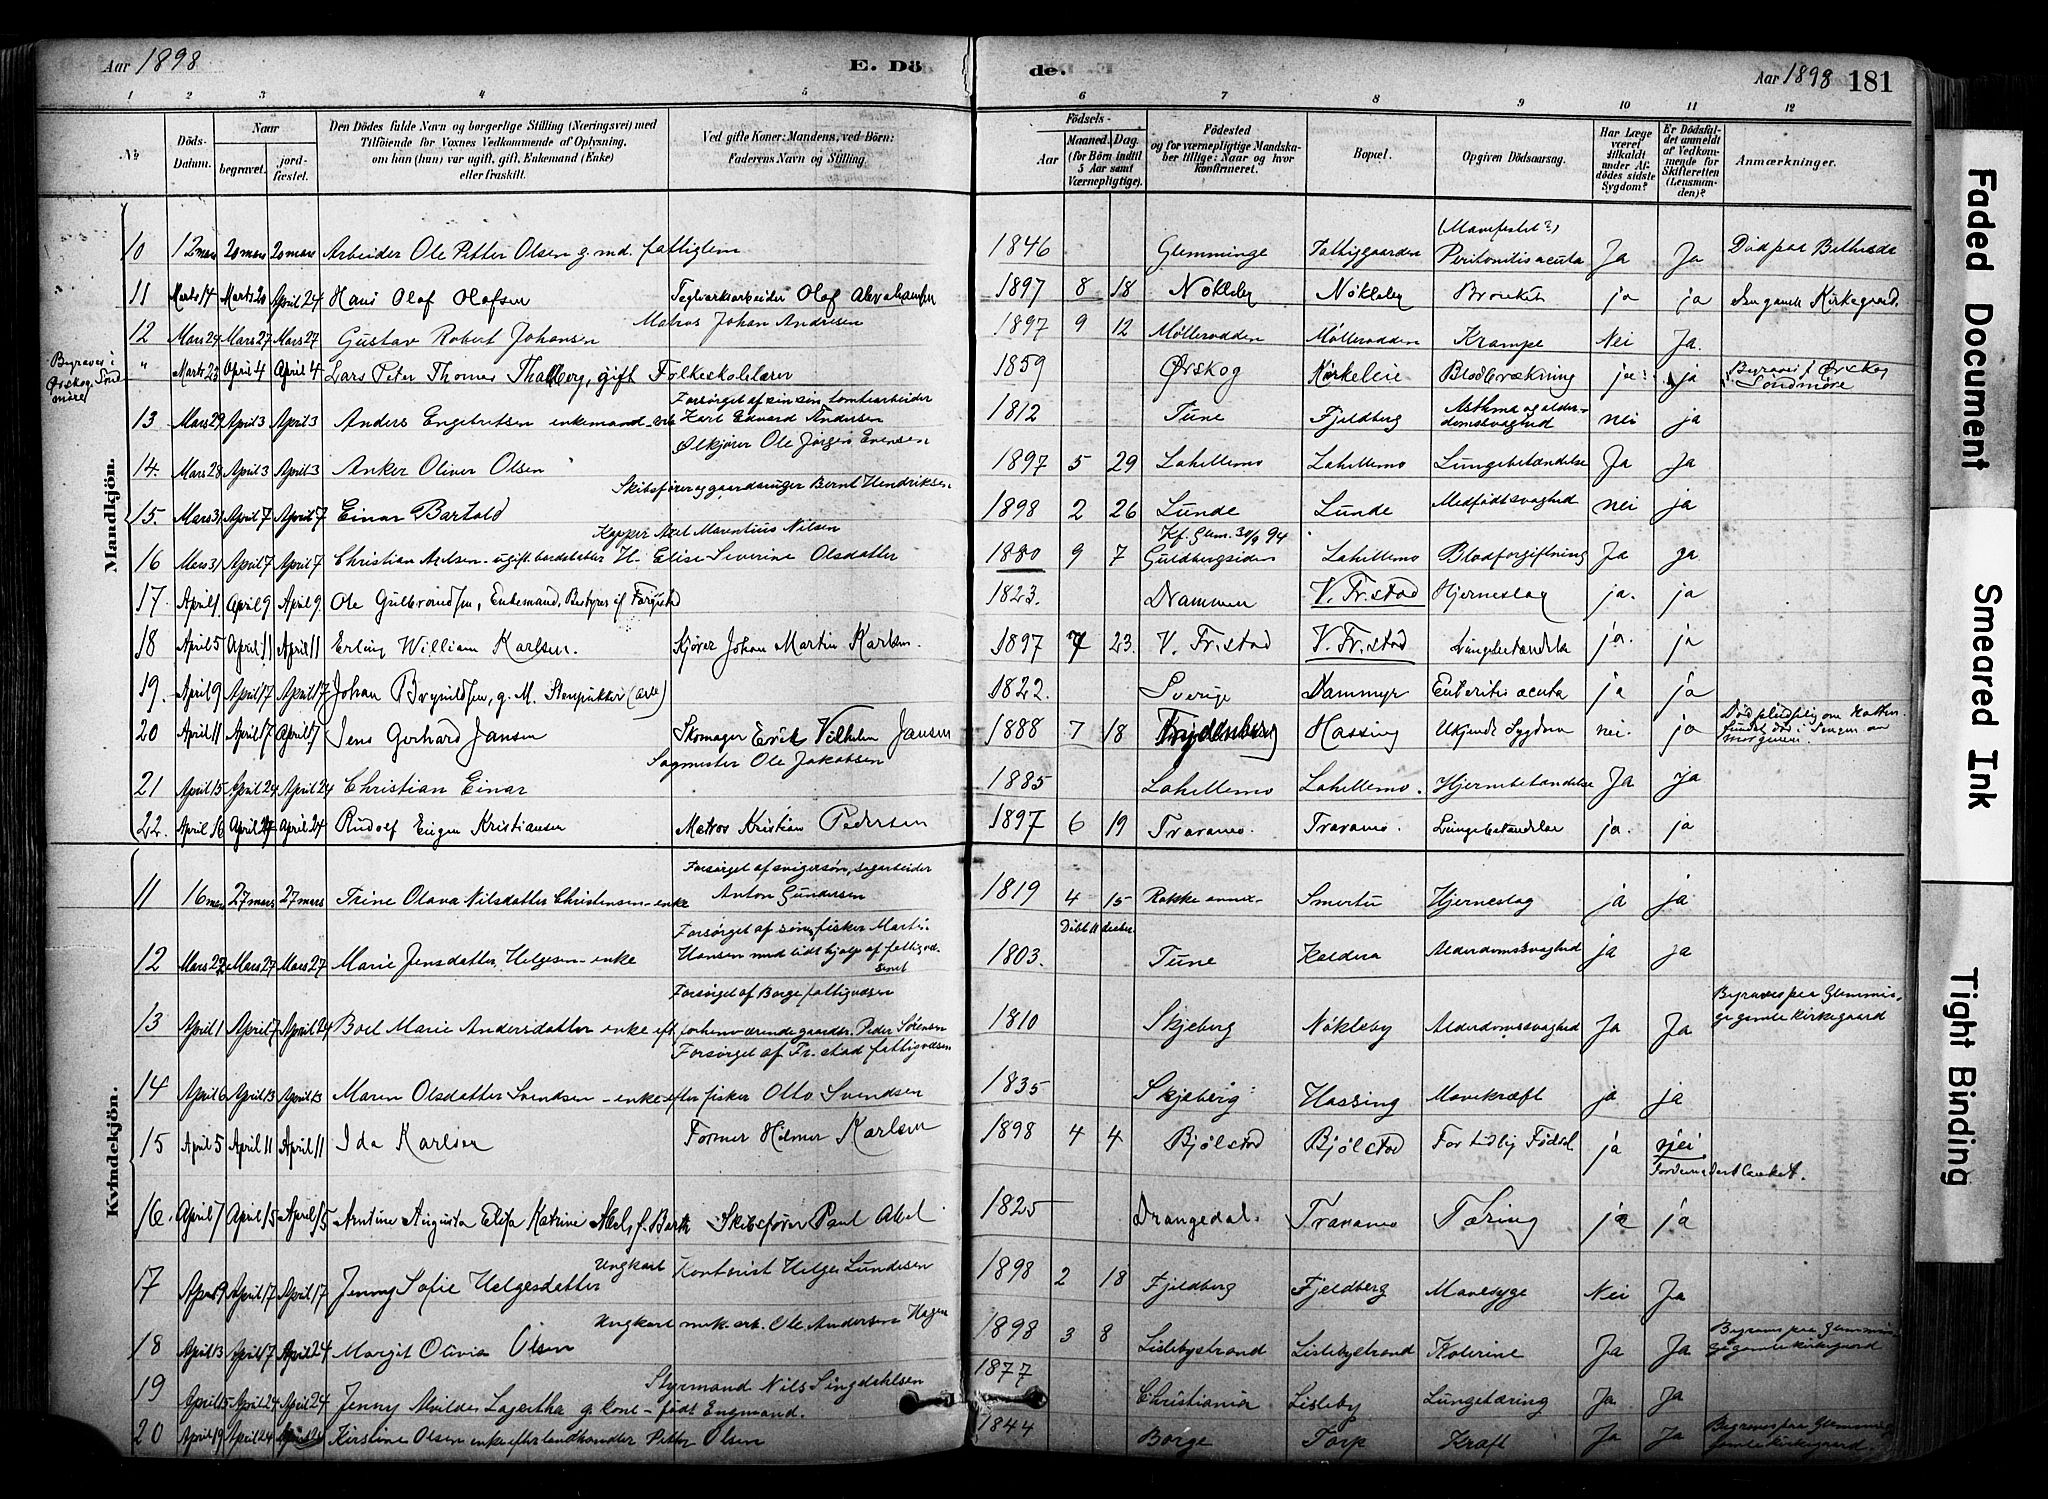 Aar 1898
E. Dö
de.
Aar 1898 181
1 2 3 4 5 6 7 8 9 10 11 12
№
Döds-Datum.
Naar
begravet.
jord-fæstet.
Den Dödes fulde Navn og borgerlige Stilling (Næringsvei) med
Tilföiende for Voxnes Vedkommende af Oplysning,
om han (hun) var ugift, gift, Enkemand (Enke)
eller fraskilt.
Ved gifte Koner: Mandens, ved Börn:
Faderens Navn og Stilling.
Födsels-
Aar
Maaned. Dag.
(for Börn indtil
5 Aar samt
Værnepligtige).
Födested
og for værnepligtige Mandska-
ber tillige: Naar og hvor
konfirmeret.
Bopæl.
Opgiven Dödsaarsag.
Har Læge
været
tilkaldt
under Af-
dödes sidste
Sygdom?
Er Dödsfal-
det anmeldt
af Vedkom-
mende for
Skifteretten
(Lensman-
den)?
Anmærkninger.
Mandkjön.
10 12 mars 20 mars 20 mars Arbeider Ole Petter Olsen g. md. fattiglem 1846 Glemminge Fattiggaarden Peritonitis acuta Ja Ja Död paa Bethesda
11 Marts 14 Marts 20 April 24 Hans Olaf Olafsen Teglverksarbeider Olaf Abrahamsen 1897 8 18 Nökleby Nökleby Bronkit ja ja Paa gamle Kirkegaard.
12 Mars 24 Mars 27 Mars 27 Gustav Robert Johansen Matros Johan Andresen 1897 9 12 Møllerodden Møllerodden Krampe Nei Ja.
Begraves i Ørskog, Sönd-möre
" Marts 23 April 4 April 4 Lars Peter Thomas Thalberg, gift Folkeskolelærer 1859 Ørskog Kirkeleie Blodbrækning ja ja Begraves i Ørskog Söndmöre
13 Mars 29 April 3 April 3 Anders Engebretsen enkemand Forsörget af sin sön, tomtearbeider Karl Edvard Andersen 1812 Tune Fjeldberg Asthma og alder-domssvaghed nei ja
14. Mars 28 April 3 April 3 Anker Oliver Olsen Ølkjører Ole Jørgen Evensen 1897 5 29 Lahellemo Lahellemo Lungebetændelse Ja Ja
15. Mars 31 April 7 April 7 Einar Bartold Skibsfører og gaardbruger Bernt Hendriksen 1898 2 26 Lunde Lunde Medfødt svaghed nei ja
16 Mars 31 April 7 April 7 Christian Axelsen - ugift Kopper Axel Marentius Nilsen H. Elise Severine Olsdatter 1880 9 7 Kf. Glem. 30/9 94 Guldbergsiden Lahellemo Blodforgiftning Ja ja
17 April 1 April 9 April 9 Ole Gulbrandsen, Enkemand, 1823. Drammen V. Fr.stad Hjerneslag ja. ja
18 April 5 April 11 April 11 Erling William Karlsen. Kjører Johan Martin Karlsen. 1897 7 23. V. Fr.stad V. Fr.stad Lungebetændelse ja. ja
19. April 9 April 17 April 17 Johan Brynildsen, g. M. Stenpukker 1822. Sverige Dammyr Enteritis acuta ja ja
20 April 11 April 17 April 17 Jens Gerhard Jansen Skomager Erik Vilhelm Jansen 1888 7 18 Hassing Ukjendt Sygdom nei. ja Död pludselig om Natten. fundet död i Sengen om morgenen.
21 April 15 April 24 April 24 Christian Einar Sagmester Ole Jakobsen 1885 Lahellemo Lahellemo. Hjernebetændelse Ja ja
22. April 16 April 24 April 24 Rudolf Eugen Kristiansen Matros Kristian Pedersen 1897 6 19 Traramo. Traramo. Lungebetændelse ja. ja
Kvindekjön.
11 16 mars 27 mars 27 mars Trine Olava Nilsdatter Christensen - enke Forsörget af svigersøn, sagarbeider Anton Gundersen 1819 4 15 Rokke annex Smertu Hjerneslag ja ja
12 Mars 22 Mars 27 Mars 27 Marie Jensdatter Helgesen - enke Forsörget af søn, fisker Martin Hansen med lidt hjælp af fattigvæ-senet 1803. Tune Kaldera Alderdomssvaghed ja ja
13 April 1 April 7 April 24 Boel Marie Andersdatter enke eft. forhenværende gaardbr. Peder Sørensen Forsörget af Borge fattigvæsen 1810 Skjeberg Nökleby Alderdomssvaghed Ja Ja Begraves paa Glemmin-ge gamle kirkegaard
14 April 6 April 13 April 13 Maren Olsdatter Svendsen - enke efter fisker Otto Svendsen Forsörget af Fr.stad fattigvæsen 1835 Skjeberg Hassing Mavekræft ja ja
15 April 5 April 11 April 11 Ida Karlsen Former Hilmer Karlsen 1898 4 4 Bjølstad Bjølstad For tidlig Fødsel ja nei
16. April 7 April 15 April 15 Antine Augusta Elisa Katrine Abel, f. Barth Skibsfører Paul Abel 1825 Drangedal. Traramo Tæring ja ja
17 April 9 April 17 April 17 Jenny Sofie Helgesdatter Ungkarl Kontorist Helge Lundesen 1898 2 18 Fjeldberg Fjeldberg Mavesyge Nei Ja
18 April 13 April 17 April 24 Margit Olivia Olsen Ungkarl mek. arb. Ole Andersen Hagen 1898 3 8 Lislebystrand Lislebystrand Kolerine Ja Ja Begraves paa Glemmin-ge gamle kirkegaard
19 April 15 April 24 April 24 Jenny Alvilde Lagertha g. kone - født Engmand. Styrmand Nils Singdahlsen 1877 Christiania Lisleby Lungetæring Ja Ja
20 April 19 April 24 Kirstine Olsen enke efter landhandler Petter Olsen 1844 Borge Torp Kræft Ja Ja Begraves paa Glemminge gamle kirkegaard.
Faded Document
Smeared Ink
Tight Binding